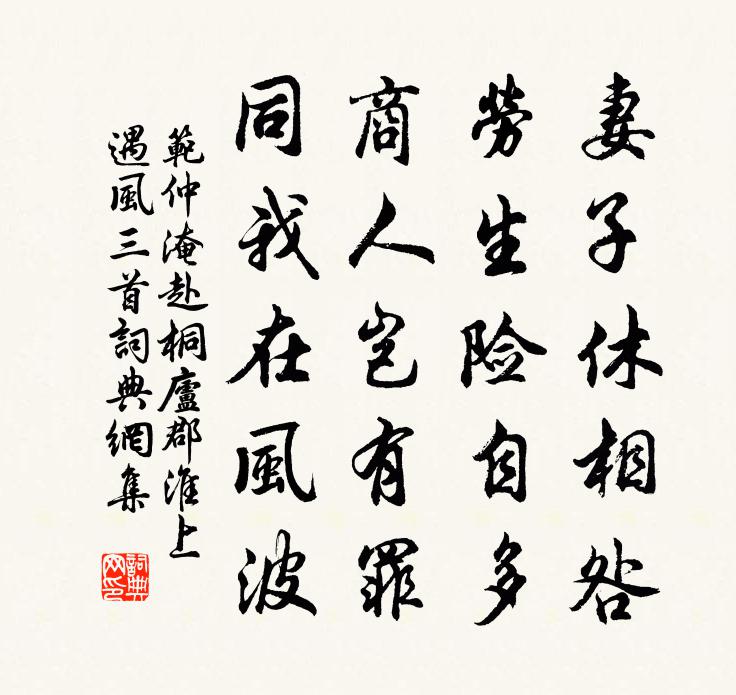 妻子休相咎
勞生險自多
商人豈有罪
同我在風波
範仲淹赴桐廬郡淮上
遇風三首詞典網集
詞典
网印